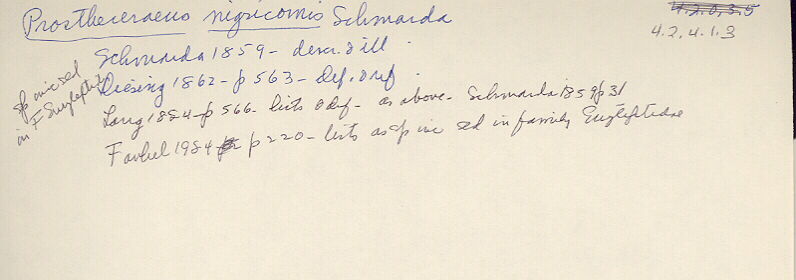 Prostheceraeus nigricornis Schmarda
4.2.0.3.5
4.2.4.1.3
Schmarda 1859 - descr. & ill.
Diesing 1862 - p 563 - Def. & ref.
Lang 1884 - p 566 - lists & def - as above - Schmarda 1859 p 31
Faubel 1984 p 220 - lists as sp inc sed in family Euryleptidae
sp inc sed
in F Euryleptidae